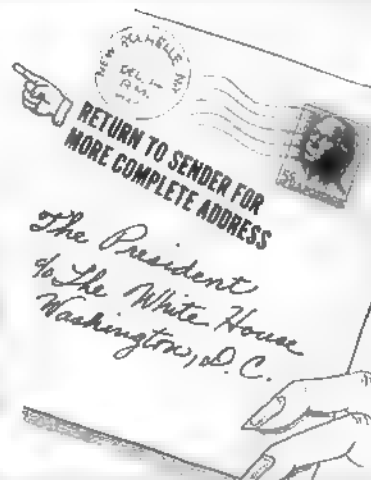 NEW ROCHELLE NY
DEC
A.M.
RETURN TO SENDER FOR
MORE COMPLETE ADDRESS
The President
c/o The White House
Washington, D.C.